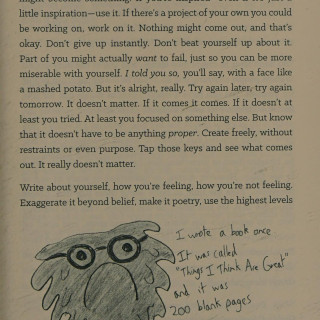 little inspiration—use it. If there's a project of your own you could
be working on, work on it. Nothing might come out, and that's
okay. Don't give up instantly. Don't beat yourself up about it.
Part of you might actually want to fail, just so you can be more
miserable with yourself. I told you so, you'll say, with a face like
a mashed potato. But it's alright, really. Try again later, try again
tomorrow. It doesn't matter. If it comes it comes. If it doesn't at
least you tried. At least you focused on something else. But know
that it doesn't have to be anything proper. Create freely, without
restraints or even purpose. Tap those keys and see what comes
out. It really doesn't matter.
Write about yourself, how you're feeling, how you're not feeling.
Exaggerate it beyond belief, make it poetry, use the highest levels
I wrote a book once
It was called
"Things I Think Are Great"
and it was
200 blank pages